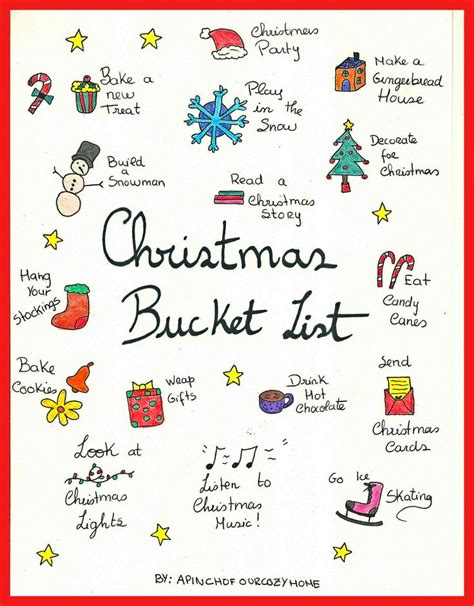 Christmas
Party
Bake a
new
Treat
Play
in the
Snow
Make a
Gingerbread
House
Build
a
Snowman
Read a
Christmas
Story
Decorate
for
Christmas
Christmas
Bucket List
Hang
Your
Stockings
Eat
Candy
Canes
Bake
Cookies
Wrap
Gifts
Drink
Hot
Chocolate
Send
Christmas
Cards
Look at
Christmas
Lights
Listen to
Christmas
Music!
Go Ice
Skating
BY: APINCHOFOURCOZYHOME